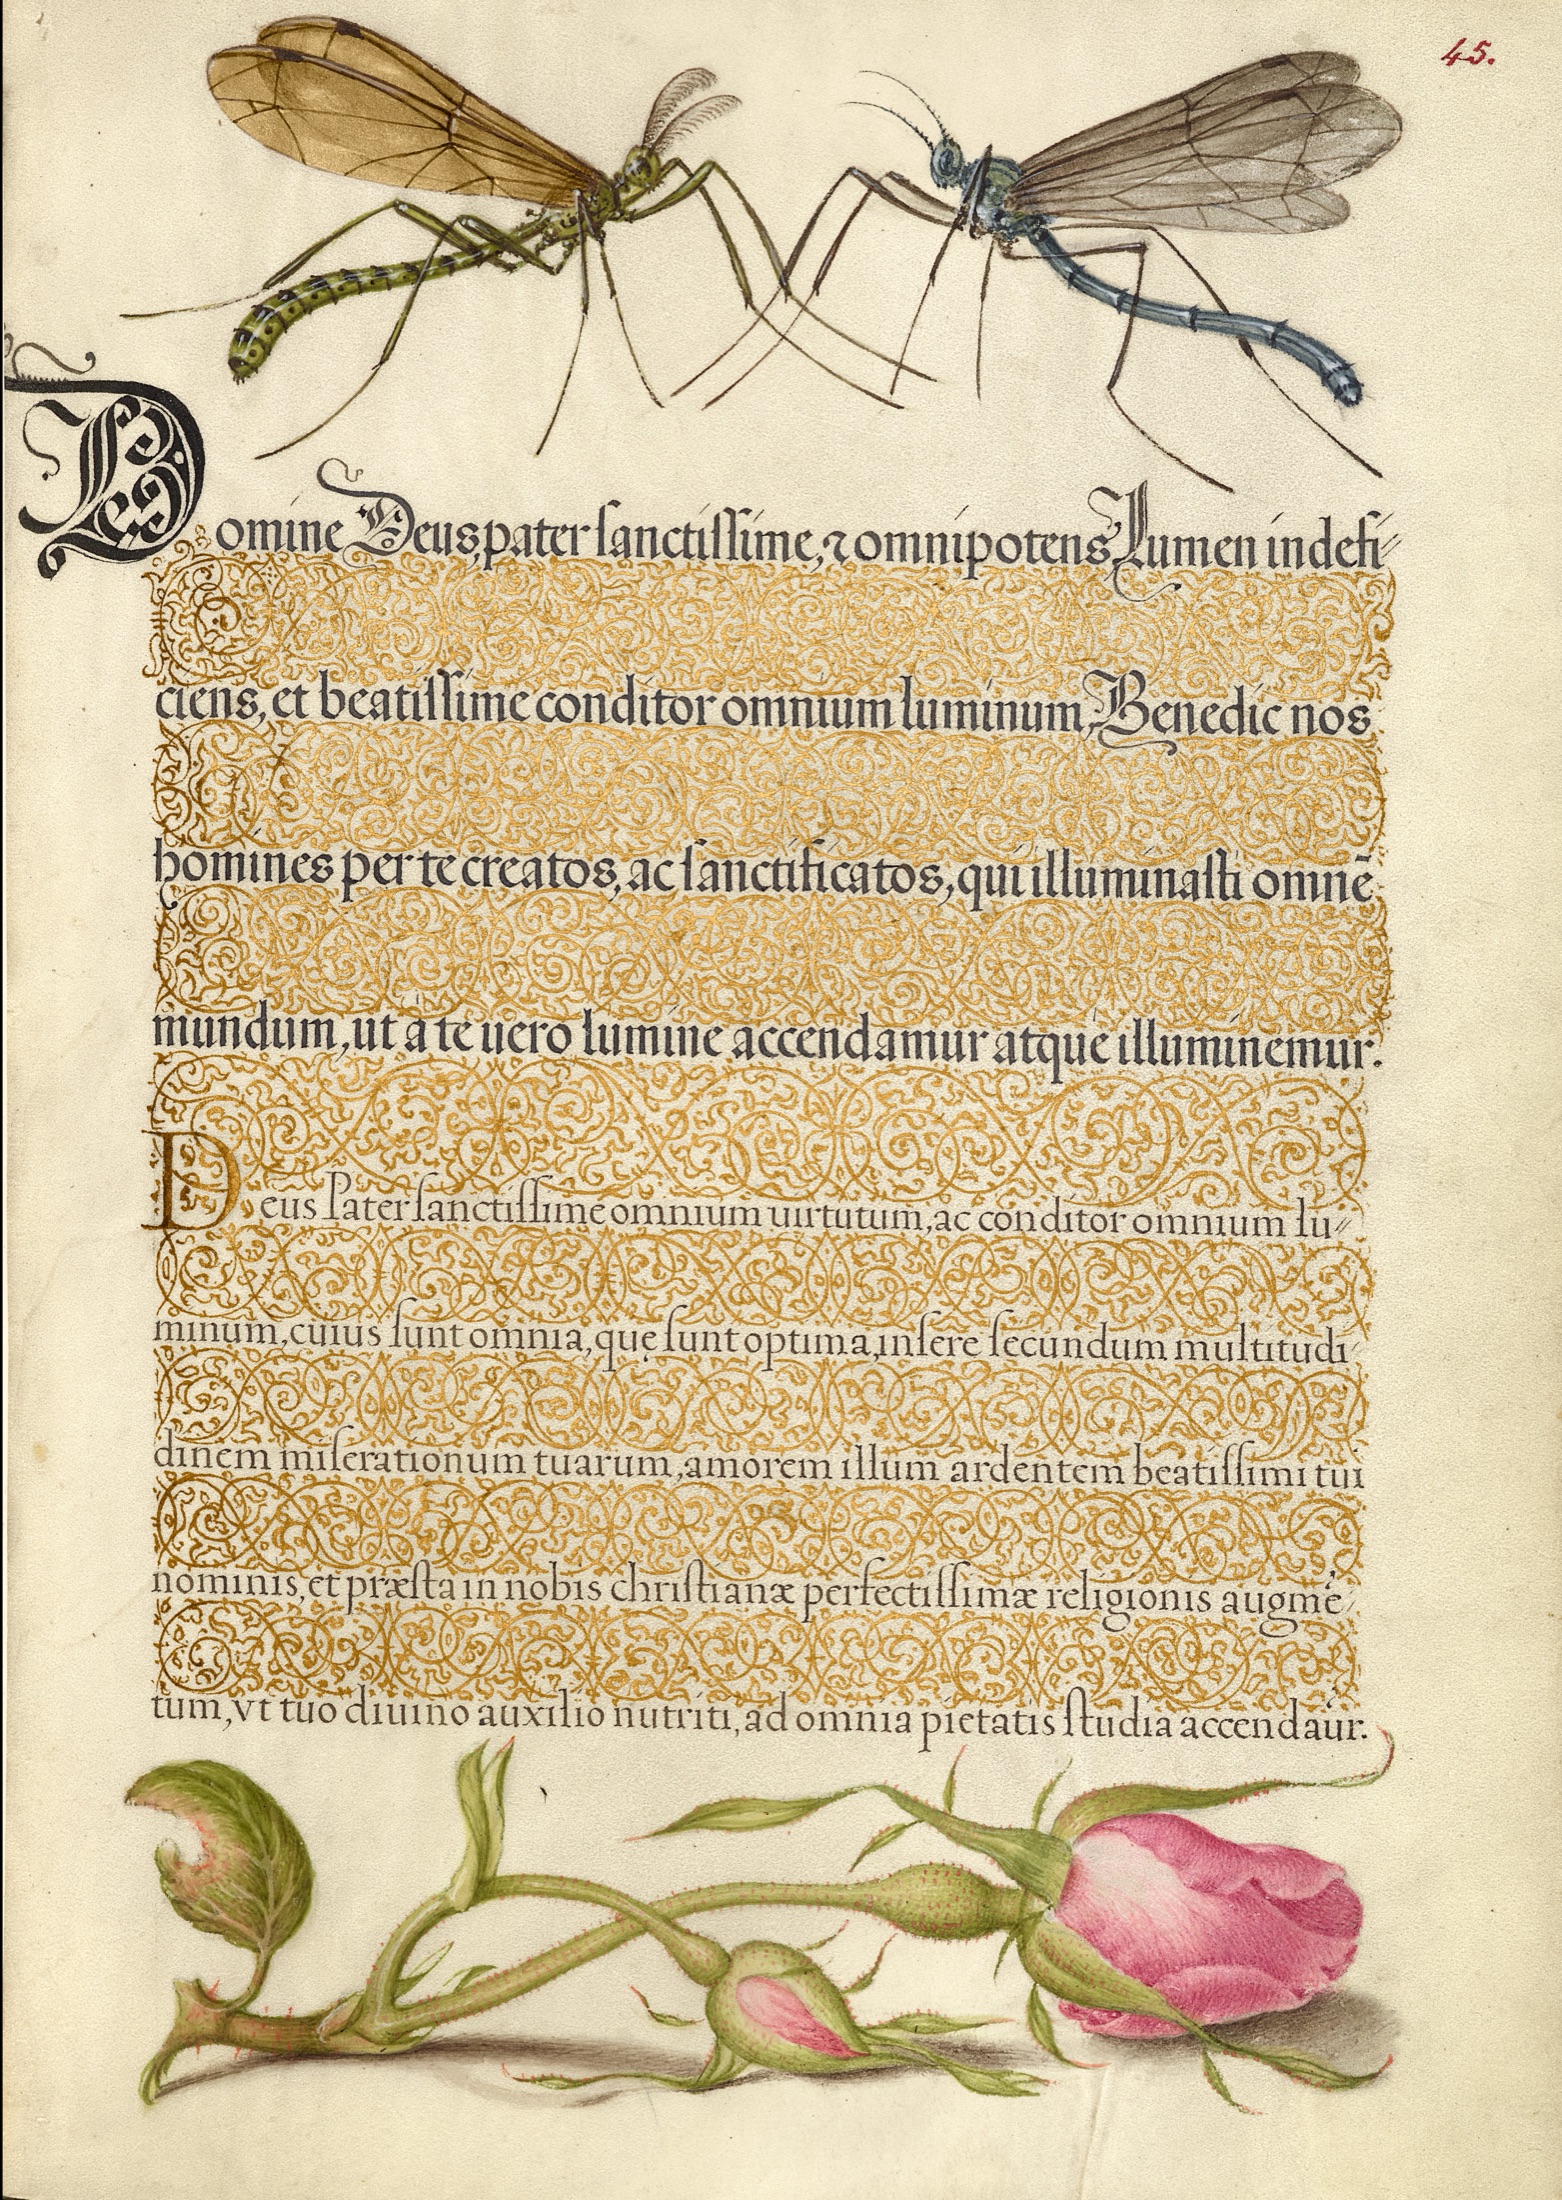 45.
Domine Deus, pater sanctissime, ⁊ omnipotens, Lumen indefi⸗
ciens, et beatissime conditor omnium luminum, Benedic nos
homines per te creatos, ac sanctificatos, qui illuminasti omnē
mundum, ut a te uero lumine accendamur atque illuminemur.
Deus Pater sanctissime omnium uirtutum, ac conditor omnium lu⸗
minum, cuius sunt omnia, quę sunt optima, insere secundum multitudi⸗
dinem miserationum tuarum, amorem illum ardentem beatissimi tui
nominis, et præsta in nobis christianæ perfectissimæ religionis augmē⸗
tum, vt tuo diuino auxilio nutriti, ad omnia pietatis studia accendaūr.